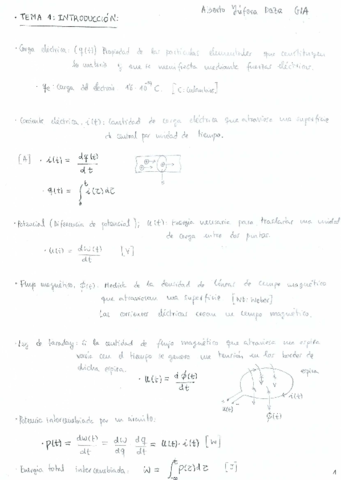 · TEMA 1: INTRODUCCIÓN:
· Carga eléctrica: (q(t)) Propiedad de las partículas elementales que constituyen
la materia y que se manifiesta mediante fuerzas eléctricas.
Carga del electrón C. [C: Culombios]
· Corriente eléctrica, i(t): Cantidad de carga eléctrica que atraviesa una superficie
de control por unidad de tiempo.
[A] · i(t) = dq(t)/dt
· q(t) = ∫ i(τ)dτ
· Potencial (Diferencia de potencial); u(t): Energía necesaria para trasladar una unidad
de carga entre dos puntos.
· u(t) = dw(t)/dt [V]
· Flujo magnético, ϕ(t): Medida de la densidad de líneas de campo magnético
que atraviesan una superficie [Wb: Weber]
Las corrientes eléctricas crean un campo magnético.
· Ley de Faraday: Si la cantidad de flujo magnético que atraviesa una espira
varía con el tiempo se genera una tensión en los bordes de
dicha espira.
· u(t) = dϕ(t)/dt
espira
u(t)
i(t)
ϕ(t)
· Potencia intercambiada por un circuito:
· p(t) = dw(t)/dt = dw/dq dq/dt = u(t) · i(t) [W]
Energía total intercambiada: W = ∫ p(τ)dτ [J]
1